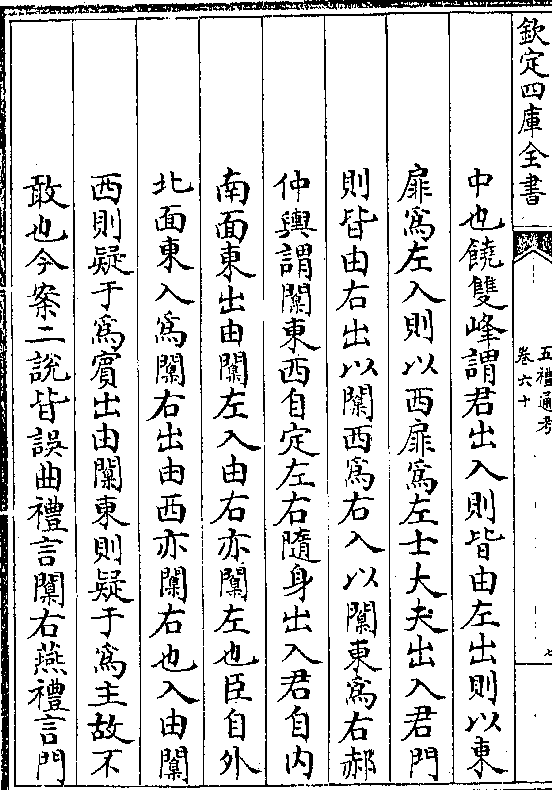 欽定四庫全書
五禮通考
卷六十
七
中也饒雙峰謂君出入則皆由左出則以東
扉爲左入則以西扉爲左士大夫出入君門
則皆由右出以闑西爲右入以闑東爲右郝
仲輿謂闑東西自定左右隨身出入君自内
南面東出由闑左入由右亦闑左也臣自外
北面東入爲闑右出由西亦闑右也入由闑
西則疑于爲賓出由闑東則疑于爲主故不
敢也今案二說皆誤曲禮言闑右燕禮言門